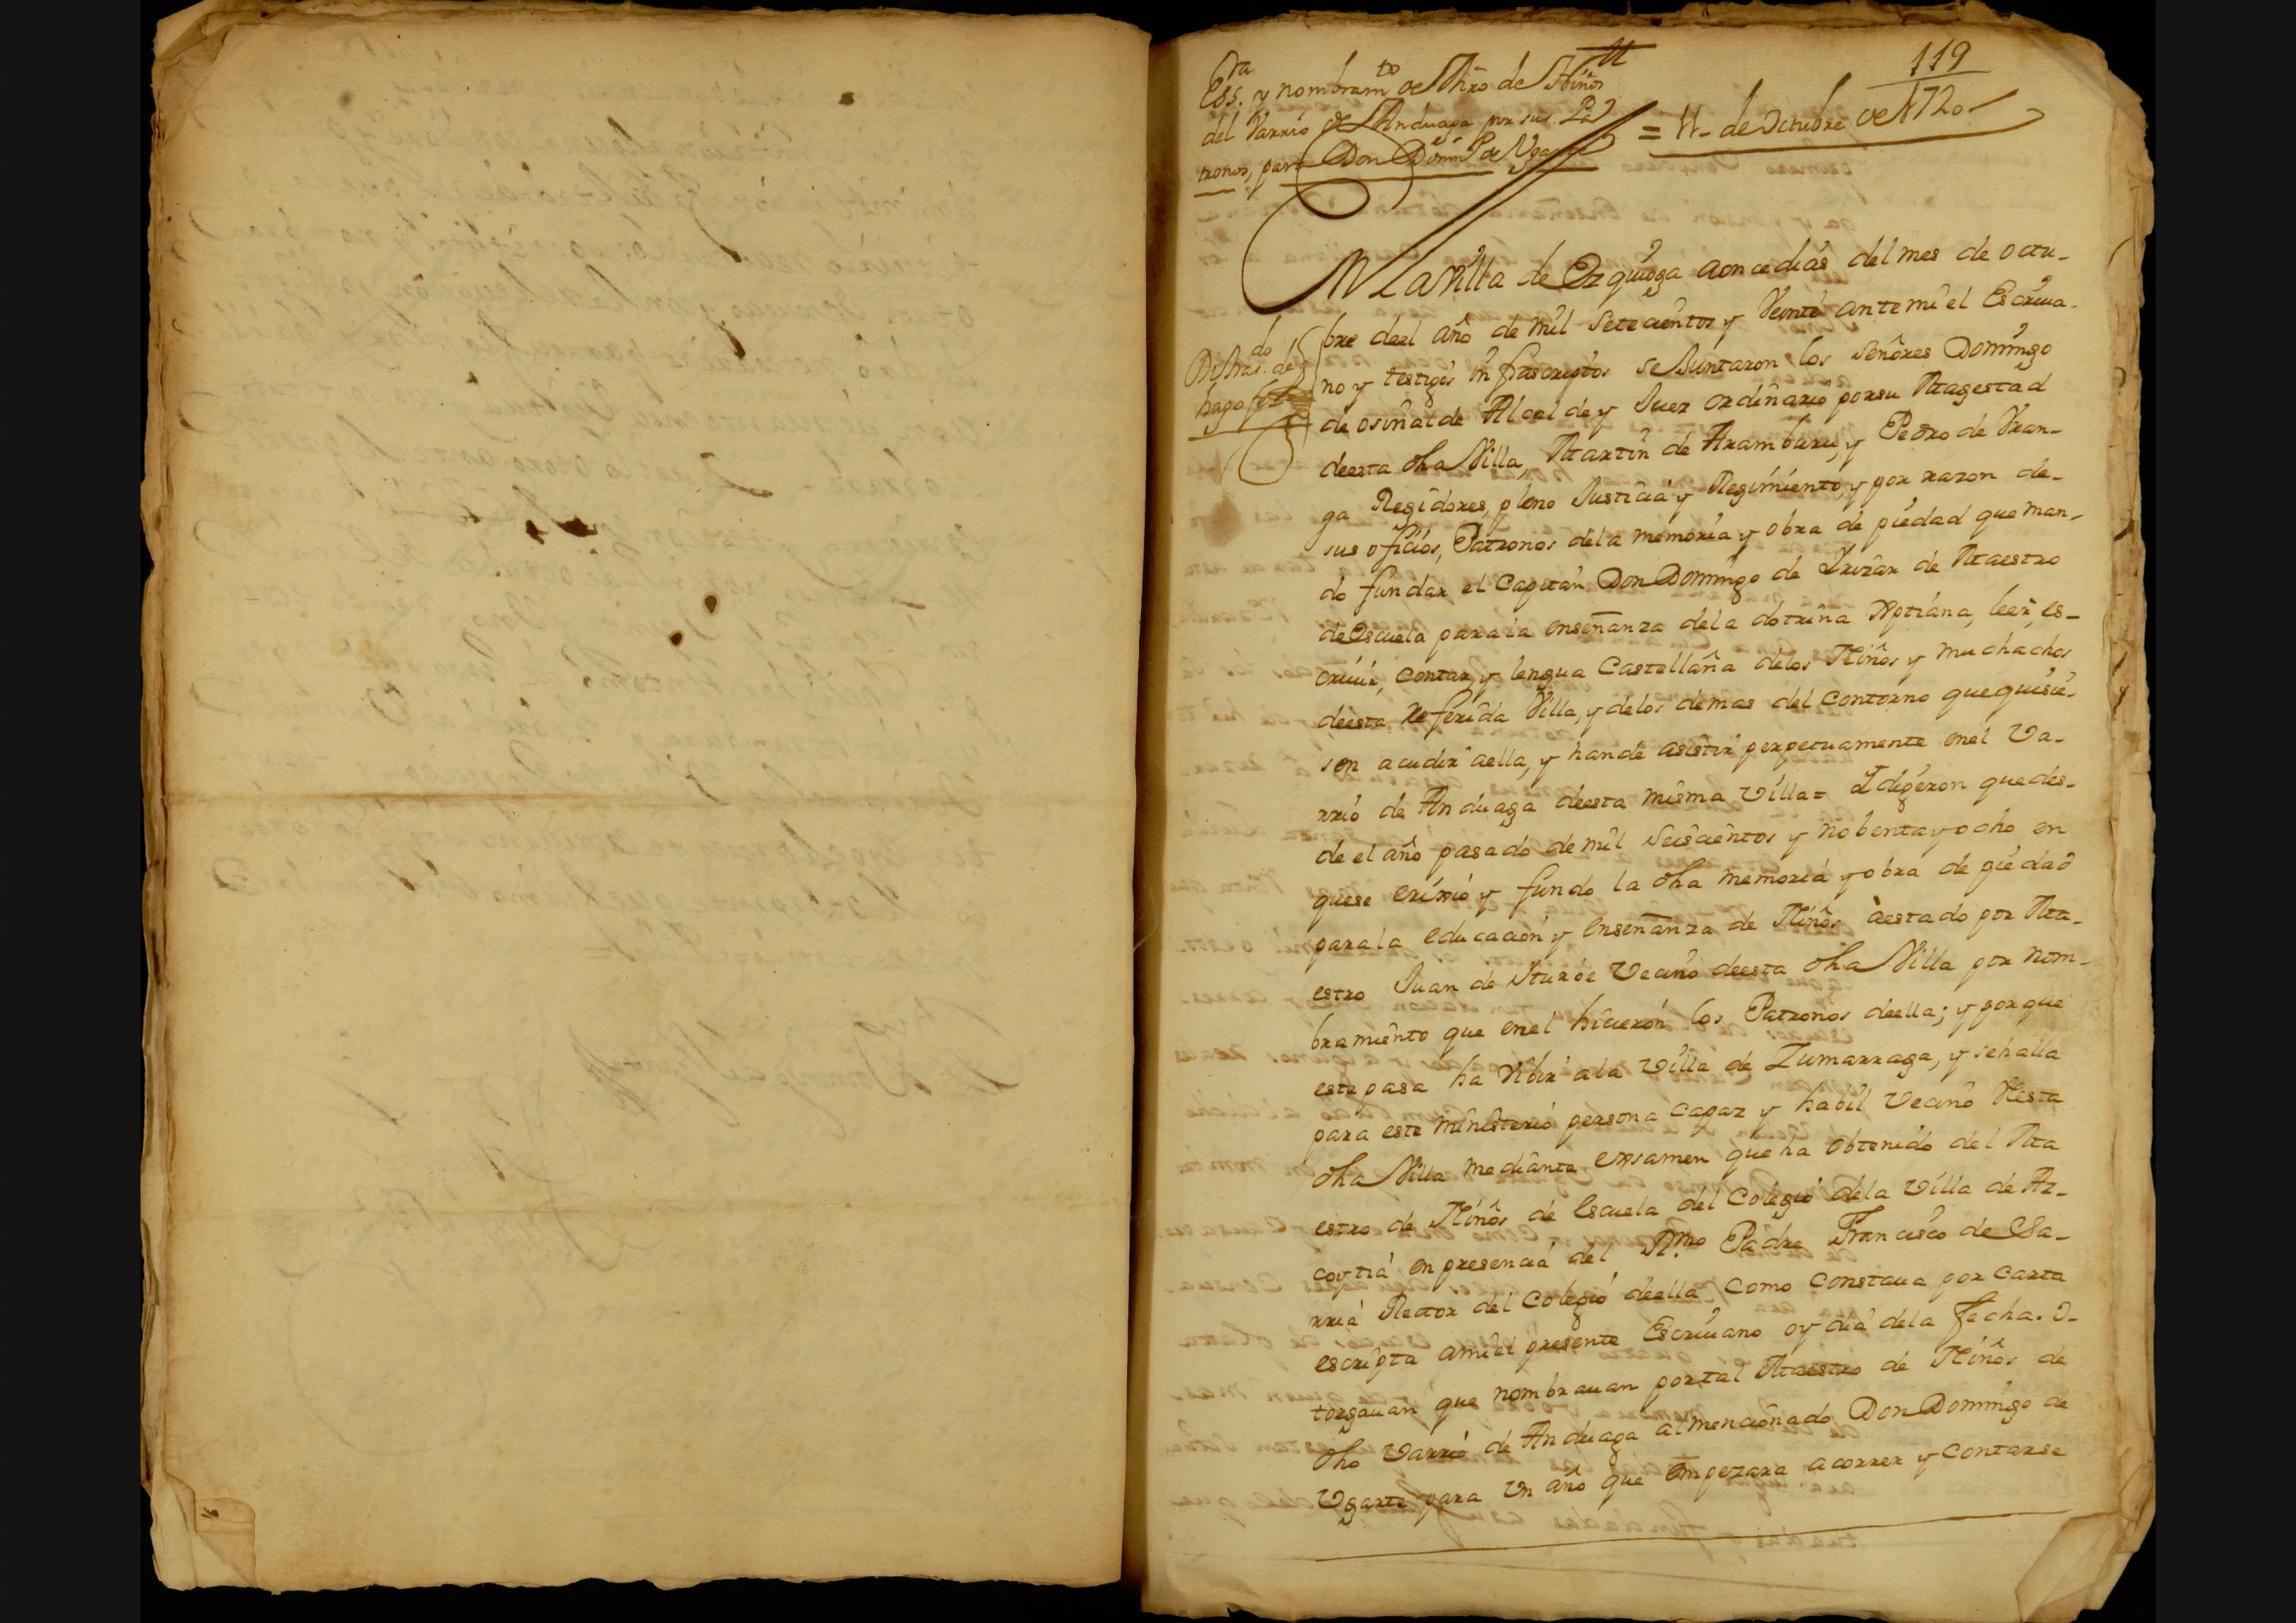 119
Ess.ra y nombram.to de Mro de Niños
del Varrio de Anduaga por sus Pa
tronos, para Don Domin.o de Ugarte
= 11- de Octubre de 1720-
En La Villa de Ezquioga a once dias del mes de octu-
bre deel año de mil setecientos y Veinte ante mi el Escriua-
no y testigos infrascriptos se Juntaron los señores Domingo
de osinalde Alcalde y Juez ordinario por su Magestad
deesta dha Villa, Martin de Aramburu, y Pedro de Vran-
ga Regidores, pleno Justicia y Regimiento, y por razon de-
sus oficios, Patronos dela memoria y obra de piedad que man-
do fundar el Capitan Don Domingo de Yrizar de Maestro
de Escuela para la enseñanza dela dotrina Xptiana, leer, es-
criuir, contar, y lengua Castellana delos Niños y muchachos
deesta referida Villa, y delos demas del contorno que quisie-
ren acudir aella, y hande asistir perpetuamente enel Va-
rrio de Anduaga deesta misma Villa= Y digeron que des-
de el año pasado de mil seiscientos y nobenta y ocho en
quese erixio y fundo la dha memoria y obra de piedad
para la educacion y enseñanza de Niños à estado por Ma-
estro Juan de Yturbe Vecino deesta dha Villa por nom-
bramiento que enel hicieron los Patronos deella; y porque
este pasa ha Vibir ala Villa de Zumarraga, y se halla
para este ministerio persona capaz y habil Vecino desta
dha Villa mediante exsamen que ha obtenido del Ma
estro de Niños de Escuela del Colegio dela Villa de Az-
coytia en presencia del R.mo Padre Francisco de Sa-
rria Rector del Colegio deella como constaua por carta
escripta ami el presente Escriuano oy dia dela fecha. O-
torgauan que nombrauan por tal Maestro de Niños de
dho Varrio de Anduaga al mencionado Don Domingo de
Ugarte para Un año que empezara a correr y contarse
hago